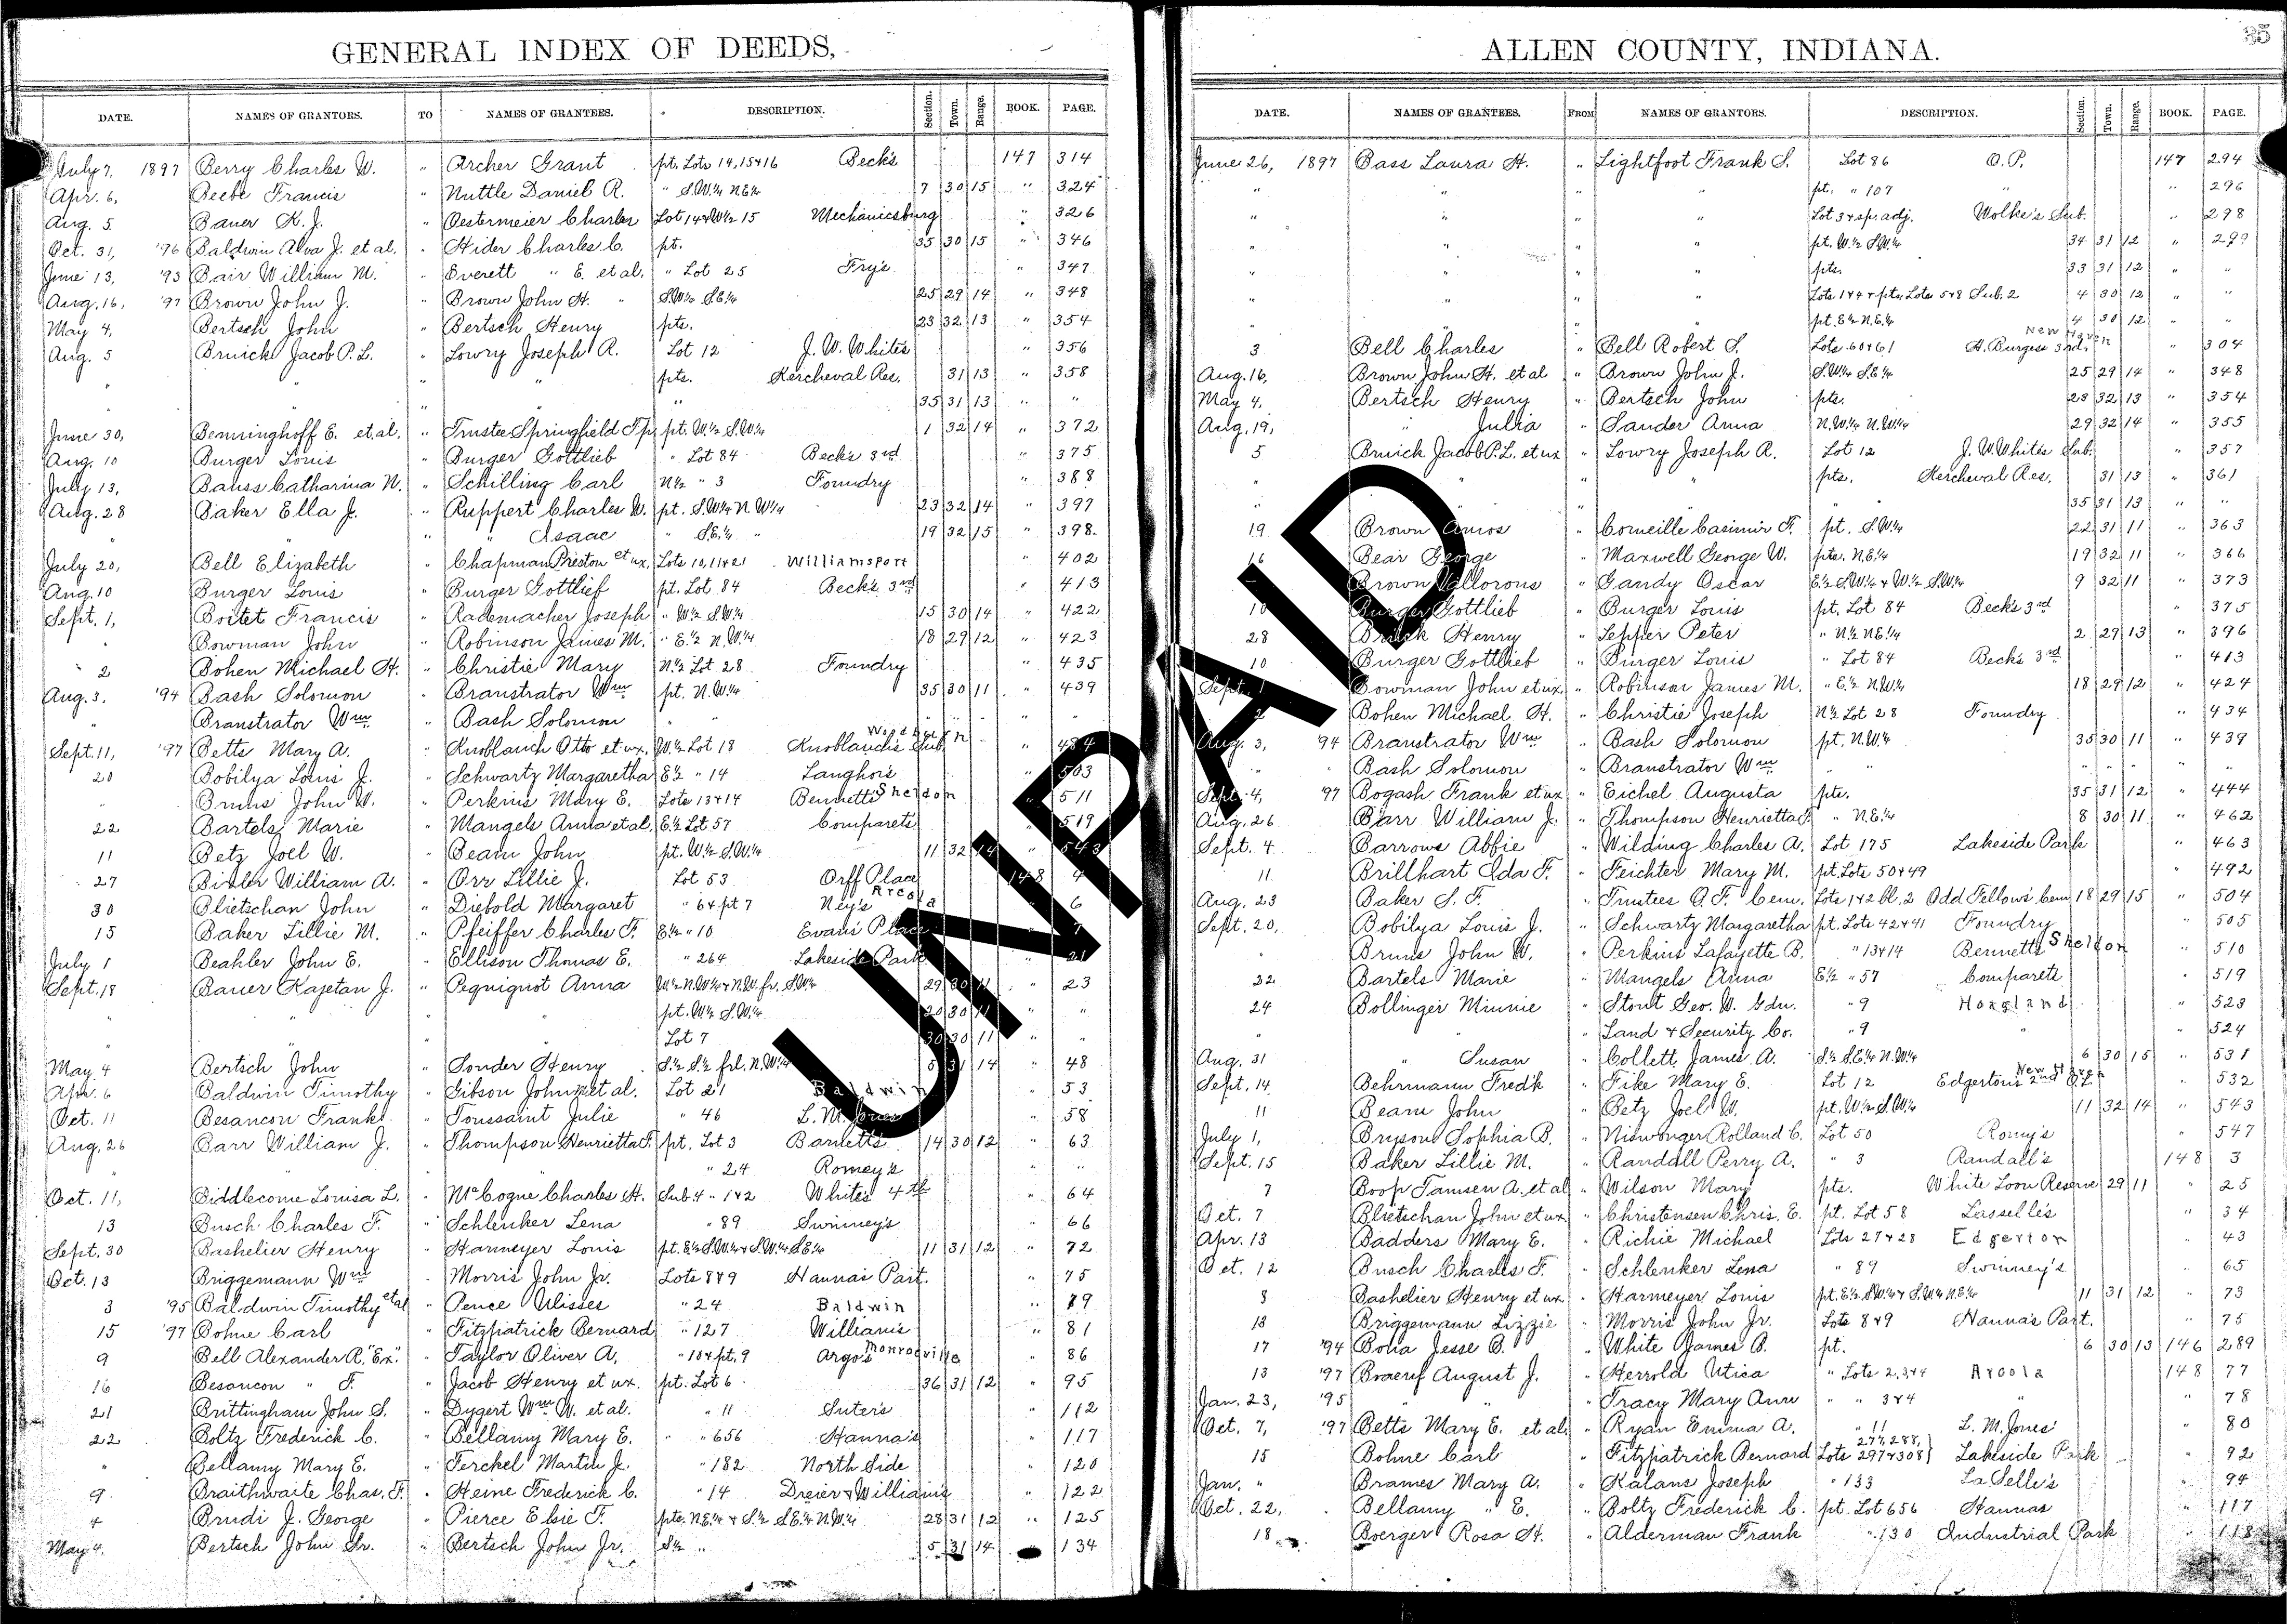 GENERAL INDEX OF DEEDS,
DATE. NAMES OF GRANTORS. TO NAMES OF GRANTEES. DESCRIPTION. Section. Town. Range. BOOK. PAGE.
July 7, 1897 Berry Charles W. " Archer Grant pt. Lots 14, 15+16 Beck's 147 314
Apr. 6, Beebe Francis " Nuttle Daniel R. " S.W.¼ N.E.¼ 7 30 15 " 324
Aug. 5 Bauer K. J. " Oestermeier Charles Lot 14+W½ 15 Mechanicsburg " 326
Oct. 31, '96 Baldwin Alva J. et al. " Hider Charles C. pt. 35 30 15 " 346
June 13, '93 Bair William M. " Everett " E. et al. " Lot 25 Fry's " 347
Aug. 16, '97 Brown John J. " Brown John H. " S.W.¼ S.E.¼ 25 29 14 " 348
May 4, Bertsch John " Bertsch Henry pts. 23 32 13 " 354
Aug. 5 Bruick Jacob P. L. " Lowry Joseph R. Lot 12 J. W. Whites " 356
" " " " pts. Kercheval Res. 31 13 " 358
" " " " " 35 31 13 " "
June 30, Benninghoff E. et al. " Trustee Springfield Tp. pt. W.½ S.W.¼ 1 32 14 " 372
Aug. 10 Burger Louis " Burger Gottlieb " Lot 84 Beck's 3rd " 375
July 13, Bauss Catharina N. " Schilling Carl N½ " 3 Foundry " 388
Aug. 28 Baker Ella J. " Ruppert Charles W. pt. S.W¼ N.W¼ 23 32 14 " 397
" " " " Isaac " S.E.¼ " 19 32 15 " 398
July 20, Bell Elizabeth " Chapman Preston et ux. Lots 10, 11+21 Williamsport " 402
Aug. 10 Burger Louis " Burger Gottlief pt. Lot 84 Beck's 3rd " 413
Sept. 1, Boitet Francis " Rademacher Joseph " W.½ S.W.¼ 15 30 14 " 422
" Bowman John " Robinson James M. " E.½ N.W.¼ 18 29 12 " 423
2 Bohen Michael H. " Christie Mary N½ Lot 28 Foundry " 435
Aug. 3. '94 Bash Solomon " Branstrator Wm pt. N.W.¼ 35 30 11 " 439
" Branstrator Wm " Bash Solomon " " " "
Sept. 11, '97 Betts Mary A. " Knoblauch Otto et ux. W.½ Lot 18 Knoblauch's Sub. " 484
20 Bobilya Louis J. " Schwartz Margaretha E½ " 14 Langhor's " 503
" Bruns John W. " Perkins Mary E. Lots 13+14 Bennetts Sheldon " 511
22 Bartels Marie " Mangels Anna et al. E.½ Lot 57 Comparets " 519
11 Betz Joel W. " Beam John pt. W.½ S.W.¼ 11 32 14 " 543
27 Bixler William A. " Orr Lillie J. Lot 53 Orff Place 148 4
30 Blietschan John " Diebold Margaret " 6+pt 7 Ney's Arcola " 6
15 Baker Lillie M. " Pfeiffer Charles F. E½ " 10 Evans Place " 7
July 1 Beahler John E. " Ellison Thomas E. " 264 Lakeside Park " 21
Sept. 18 Bauer Kajetan J. " Pequignot Anna W½ N.W¼+N.W. fr. S.W¼ 29 30 11 " 23
" " " " pt. W½ S.W.¼ 20 30 11 " "
" " " " Lot 7 30 30 11 " "
May 4 Bertsch John " Sonder Henry S.½ S.½ frl. N.W¼ 5 31 14 " 48
Apr. 6 Baldwin Timothy " Gibson John et al. Lot 21 Baldwin " 53
Oct. 11 Besancon Frank " Toussaint Julie " 46 L. M. Jones " 58
Aug. 26 Barr William J. " Thompson Henrietta F. pt. Lot 3 Barnett's 14 30 12 " 63
" " " " " 24 Romey's " "
Oct. 11, Biddlecome Louisa L. " McCogue Charles H. Sub. 4 " 1+2 White's 4th " 64
13 Busch Charles F. " Schlenker Lena " 89 Swinney's " 66
Sept. 30 Bashelier Henry " Harmeyer Louis pt. E½ S.W.¼+S.W.¼ S.E.¼ 11 31 12 " 72
Oct. 13 Briggemann Wm " Morris John Jr. Lots 8+9 Hanna's Part. " 75
3 '95 Baldwin Timothy et al " Pence Ulisses " 24 Baldwin " 79
15 '97 Bohne Carl " Fitzpatrick Bernard " 127 William's " 81
9 Bell Alexander R. "Ex." " Taylor Oliver A. " 10+pt. 9 Argo's Monroeville " 86
16 Besancon " F. " Jacob Henry et ux. pt. Lot 6 36 31 12 " 95
21 Brittingham John S. " Dygert Wm W. et al. " 11 Suter's " 112
22 Boltz Frederick C. " Bellamy Mary E. " 656 Hanna's " 117
" Bellamy Mary E. " Ferckel Martin J. " 182 North Side " 120
9 Braithwaite Chas. F. " Heine Frederick C. " 14 Dreier & Williams " 122
4 Brudi J. George " Pierce Elsie F. pts. N.E.¼ + S.½ S.E.¼ N.W.¼ 28 31 12 " 125
May 4. Bertsch John Sr. " Bertsch John Jr. S½ " 5 31 14 134
ALLEN COUNTY, INDIANA. 35
DATE. NAMES OF GRANTEES. FROM NAMES OF GRANTORS. DESCRIPTION. Section. Town. Range. BOOK. PAGE.
June 26, 1897 Bass Laura H. " Lightfoot Frank S. Lot 86 O. P. 147 294
" " " " pt. " 107 " " 296
" " " " Lot 3+sp. adj. Wolke's Sub. " 298
" " " " pt. W.½ S.W.¼ 34 31 12 " 299
" " " " pts. 33 31 12 " "
" " " " Lots 1+4+pts. Lots 5+8 Sub. 2 4 30 12 " "
" " " " pt. E½ N.E.¼ 4 30 12 " "
3 Bell Charles " Bell Robert S. Lots 60+61 H. Burgess 3rd New Haven " 304
Aug. 16, Brown John H. et al " Brown John J. S.W¼ S.E.¼ 25 29 14 " 348
May 4, Bertsch Henry " Bertsch John pts. 23 32 13 " 354
Aug. 19, " Julia " Sander Anna N.W.¼ N.W.¼ 29 32 14 " 355
5 Bruick Jacob P. L. et ux " Lowry Joseph R. Lot 12 J. W. Whites Sub. " 357
" " " " pts. Kercheval Res. 31 13 " 361
" " " " " 35 31 13 " "
19 Brown Amos " Corneille Casimir F. pt. S.W¼ 22 31 11 " 363
16 Bear George " Maxwell George W. pts. N.E.¼ 19 32 11 " 366
Brown Vallorous " Gandy Oscar E.½ S.W.¼ + W.½ S.W.¼ 9 32 11 " 373
10 Burger Gottlieb " Burger Louis pt. Lot 84 Beck's 3rd " 375
28 Bruck Henry " Lepper Peter " N½ N.E.¼ 2 29 13 " 396
10 Burger Gottlieb " Burger Louis " Lot 84 Beck's 3rd " 413
Sept. 1 Bowman John et ux " Robinson James M. " E.½ N.W.¼ 18 29 12 " 424
2 Bohen Michael H. " Christie Joseph N½ Lot 28 Foundry " 434
Aug. 3, '94 Branstrator Wm " Bash Solomon pt. N.W.¼ 35 30 11 " 439
" Bash Solomon " Branstrator Wm " " " " " "
Sept. 4, '97 Bogash Frank et ux " Eichel Augusta pts. 35 31 12 " 444
Aug. 26 Barr William J. " Thompson Henrietta F. " N.E.¼ 8 30 11 " 462
Sept. 4 Barrows Abbie " Wilding Charles A. Lot 175 Lakeside Park " 463
11 Brillhart Ida F. " Feichter Mary M. pt. Lots 50+49 " 492
Aug. 23 Baker S. F. " Trustees O. F. Cem. Lots 1+2 bl. 2 Odd Fellows Cem 18 29 15 " 504
Sept. 20, Bobilya Louis J. " Schwartz Margaretha pt. Lots 42+41 Foundry " 505
" Bruns John W. " Perkins Lafayette B. " 13+14 Bennetts Sheldon " 510
22 Bartels Marie " Mangels Anna E½ " 57 Comparets " 519
24 Bollinger Minnie " Stout Geo. W. Gdn. " 9 Hoagland " 523
" " " Land & Security Co. " 9 " " 524
Aug. 31 " Susan " Collett James A. S½ S.E.¼ N.W.¼ 6 30 15 " 531
Sept. 14 Behrmann Fred'k " Fike Mary E. Lot 12 Edgerton's 2nd New Haven " 532
11 Beam John " Betz Joel W. pt. W.½ S.W.¼ 11 32 14 " 543
July 1, Bryson Sophia B. " Niswonger Rolland C. Lot 50 Romy's " 547
Sept. 15 Baker Lillie M. " Randall Perry A. " 3 Randall's 148 3
7 Boop Tamsen A. et al " Wilson Mary pts. White Loon Reserve 29 11 " 25
Oct. 7 Blietschan John et ux " Christensen Chris. E. pt. Lot 58 Lasselle's " 34
Apr. 13 Badders Mary E. " Richie Michael Lots 27+28 Edgerton " 43
Oct. 12 Busch Charles F. " Schlenker Lena " 89 Swinney's " 65
8 Bashelier Henry et ux. " Harmeyer Louis pt. E½ S.W¼+S.W¼ N.E.¼ 11 31 12 " 73
13 Briggemann Lizzie " Morris John Jr. Lots 8+9 Hanna's Part. " 75
17 '94 Bolia Jesse B. " White James B. pt. 6 30 13 146 289
13 '97 Braeuf August J. " Herrold Utica " Lots 2,3+4 Arcola 148 77
Jan. 23, '95 " " " Tracy Mary Ann " " 3+4 " " 78
Oct. 7, '97 Betts Mary E. et al. " Ryan Emma A. " 11 L. M. Jones' " 80
15 Bohne Carl " Fitzpatrick Bernard Lots 277, 288, 297+308} Lakeside Park " 92
Jan. " Brames Mary A. " Kalans Joseph " 133 La Selle's " 94
Oct. 22, Bellamy " E. " Boltz Frederick C. pt. Lot 656 Hannas " 117
18 Boerger Rosa H. " Alderman Frank " 130 Industrial Park " 118
UNPAID